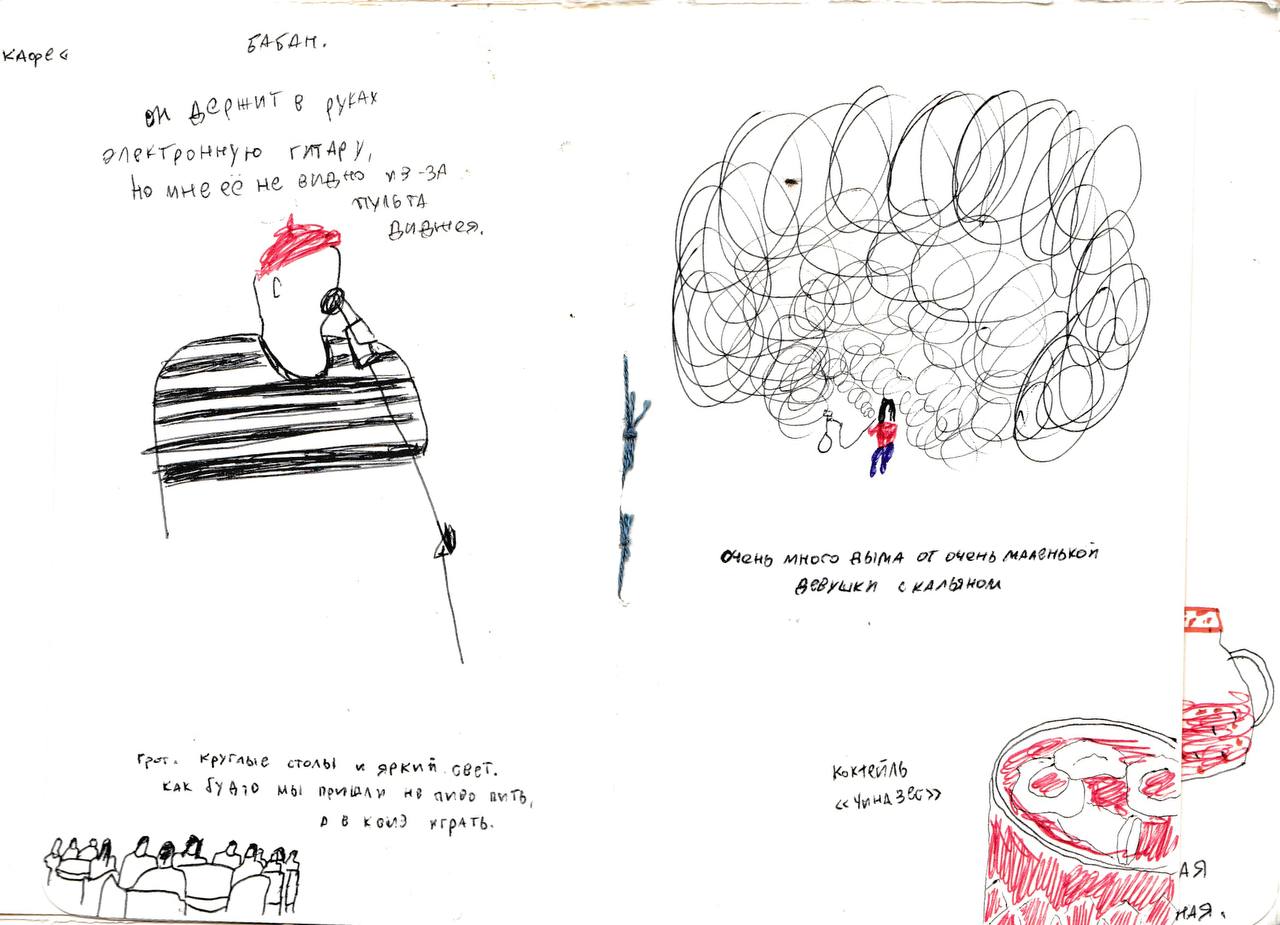 КАФЕ «
БАБАН.
ОН ДЕРЖИТ В РУКАХ
ЭЛЕКТРОННУЮ ГИТАРУ,
НО МНЕ ЕЁ НЕ ВИДНО ИЗ-ЗА
ПУЛЬТА
ДИДЖЕЯ.
ГРОТ. КРУГЛЫЕ СТОЛЫ И ЯРКИЙ СВЕТ.
КАК БУДТО МЫ ПРИШЛИ НЕ ПИВО ПИТЬ,
А В КВИЗ ИГРАТЬ.
ОЧЕНЬ МНОГО ДЫМА ОТ ОЧЕНЬ МАЛЕНЬКОЙ
ДЕВУШКИ С КАЛЬЯНОМ
КОКТЕЙЛЬ
«ЧИНАЗЕС»
АЯ
НАЯ.